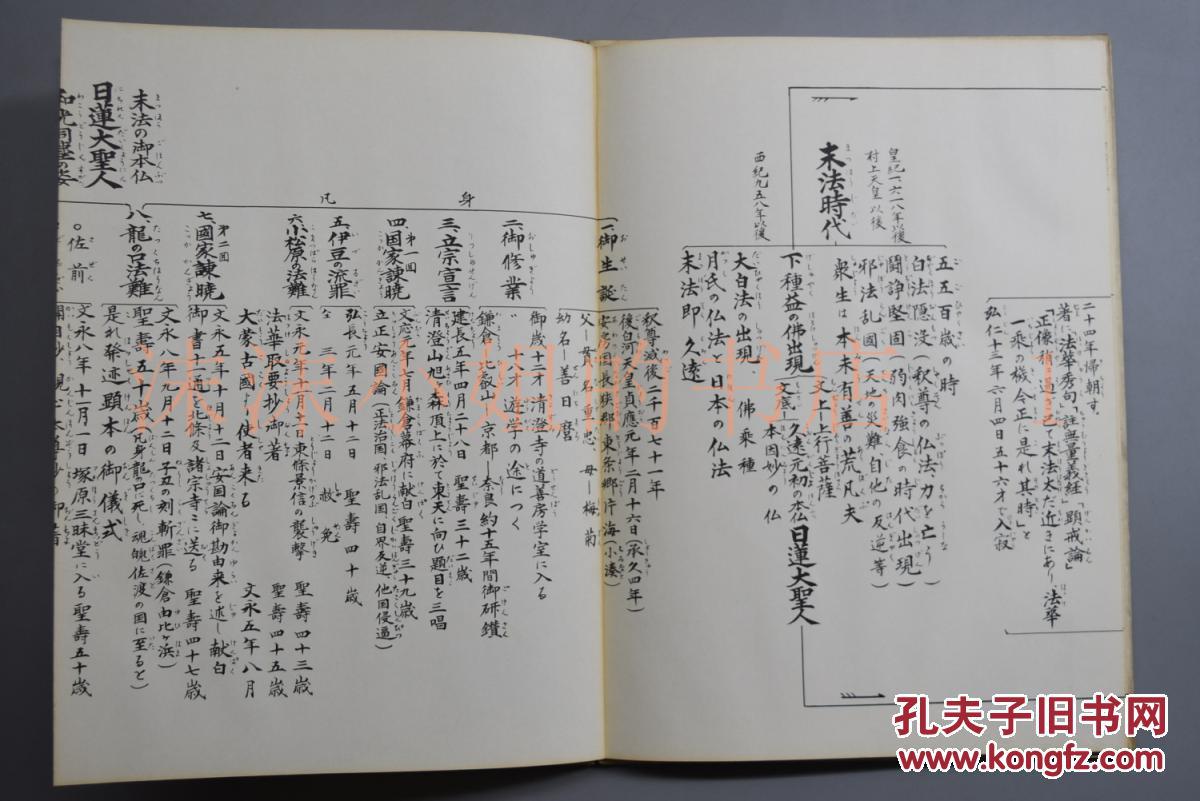 二十四年帰朝す。
著に「法華秀句」「註無量義経」「顕戒論」
「正像稍過ぎ已て末法太だ近きにあり、法華
一乘の機今正に是れ其時」と
弘仁十三年六月四日五十六才で入寂
皇紀一、六一八年以後
村上天皇以後
末法時代
西紀九五八年以後
五五百歳の時
白法隠没(釈尊の仏法力を亡う)
鬪諍堅固(弱肉強食の時代出現)
邪法乱國(天地の災難自他の反逆等)
衆生は本未有善の荒凡夫
下種益の佛出現
(文上)上行菩薩
(文底)久遠元初の本仏
本因妙の仏
日蓮大聖人
大白法の出現 佛乘種
月氏の仏法と日本の仏法
末法即久遠
身
凡
一、御生誕
釈尊滅後二千百七十一年
後白河天皇貞應元年二月十六日(承久四年)
安房国長狭郡東条郷片海(小湊)
父-貫名重忠、母-梅菊
幼名-善日麿
二、御修業
御歳十二才清澄寺の道善房学室に入る
〃 十八才 遊学の途につく
鎌倉-比叡山-京都-奈良約十五年間御研鑽
三、立宗宣言
建長五年四月二十八日 聖壽三十二歳
清澄山旭ヶ森頂上に於て東天に向ひ題目を三唱
四、第一回國家諫暁
文應元年七月鎌倉幕府に献白聖壽三十九歳
立正安國論(正法治国、邪法乱国、自界反逆、他国侵逼)
五、伊豆の流罪
弘長元年五月十二日 聖壽四十歳
〃 三年二月二十二日 赦免
六、小松原の法難
文永元年十一月十一日東條景信の襲撃 聖壽四十三歳
法華取要抄御著 聖壽四十五歳
七、第二回國家諫暁
大蒙古國より使者来る 文永五年八月
文永五年十月十二日安国論御勘由来を述し献白
御書十一通北條及諸宗寺々に送る 聖壽四十七歳
八、龍の口法難
文永八年九月十二日子丑の刻斬罪(鎌倉由比ヶ浜)
聖壽五十歳(凡身龍の口に死し、魂魄佐渡の国に至ると)
是れ発迹顕本の御儀式
○佐前
文永八年十一月一日 塚原三昧堂に入る聖壽五十歳
開目抄
末法の御本仏
日蓮大聖人
和光同塵の姿
沫沫小姐的书店
孔夫子旧书网
www.kongfz.com